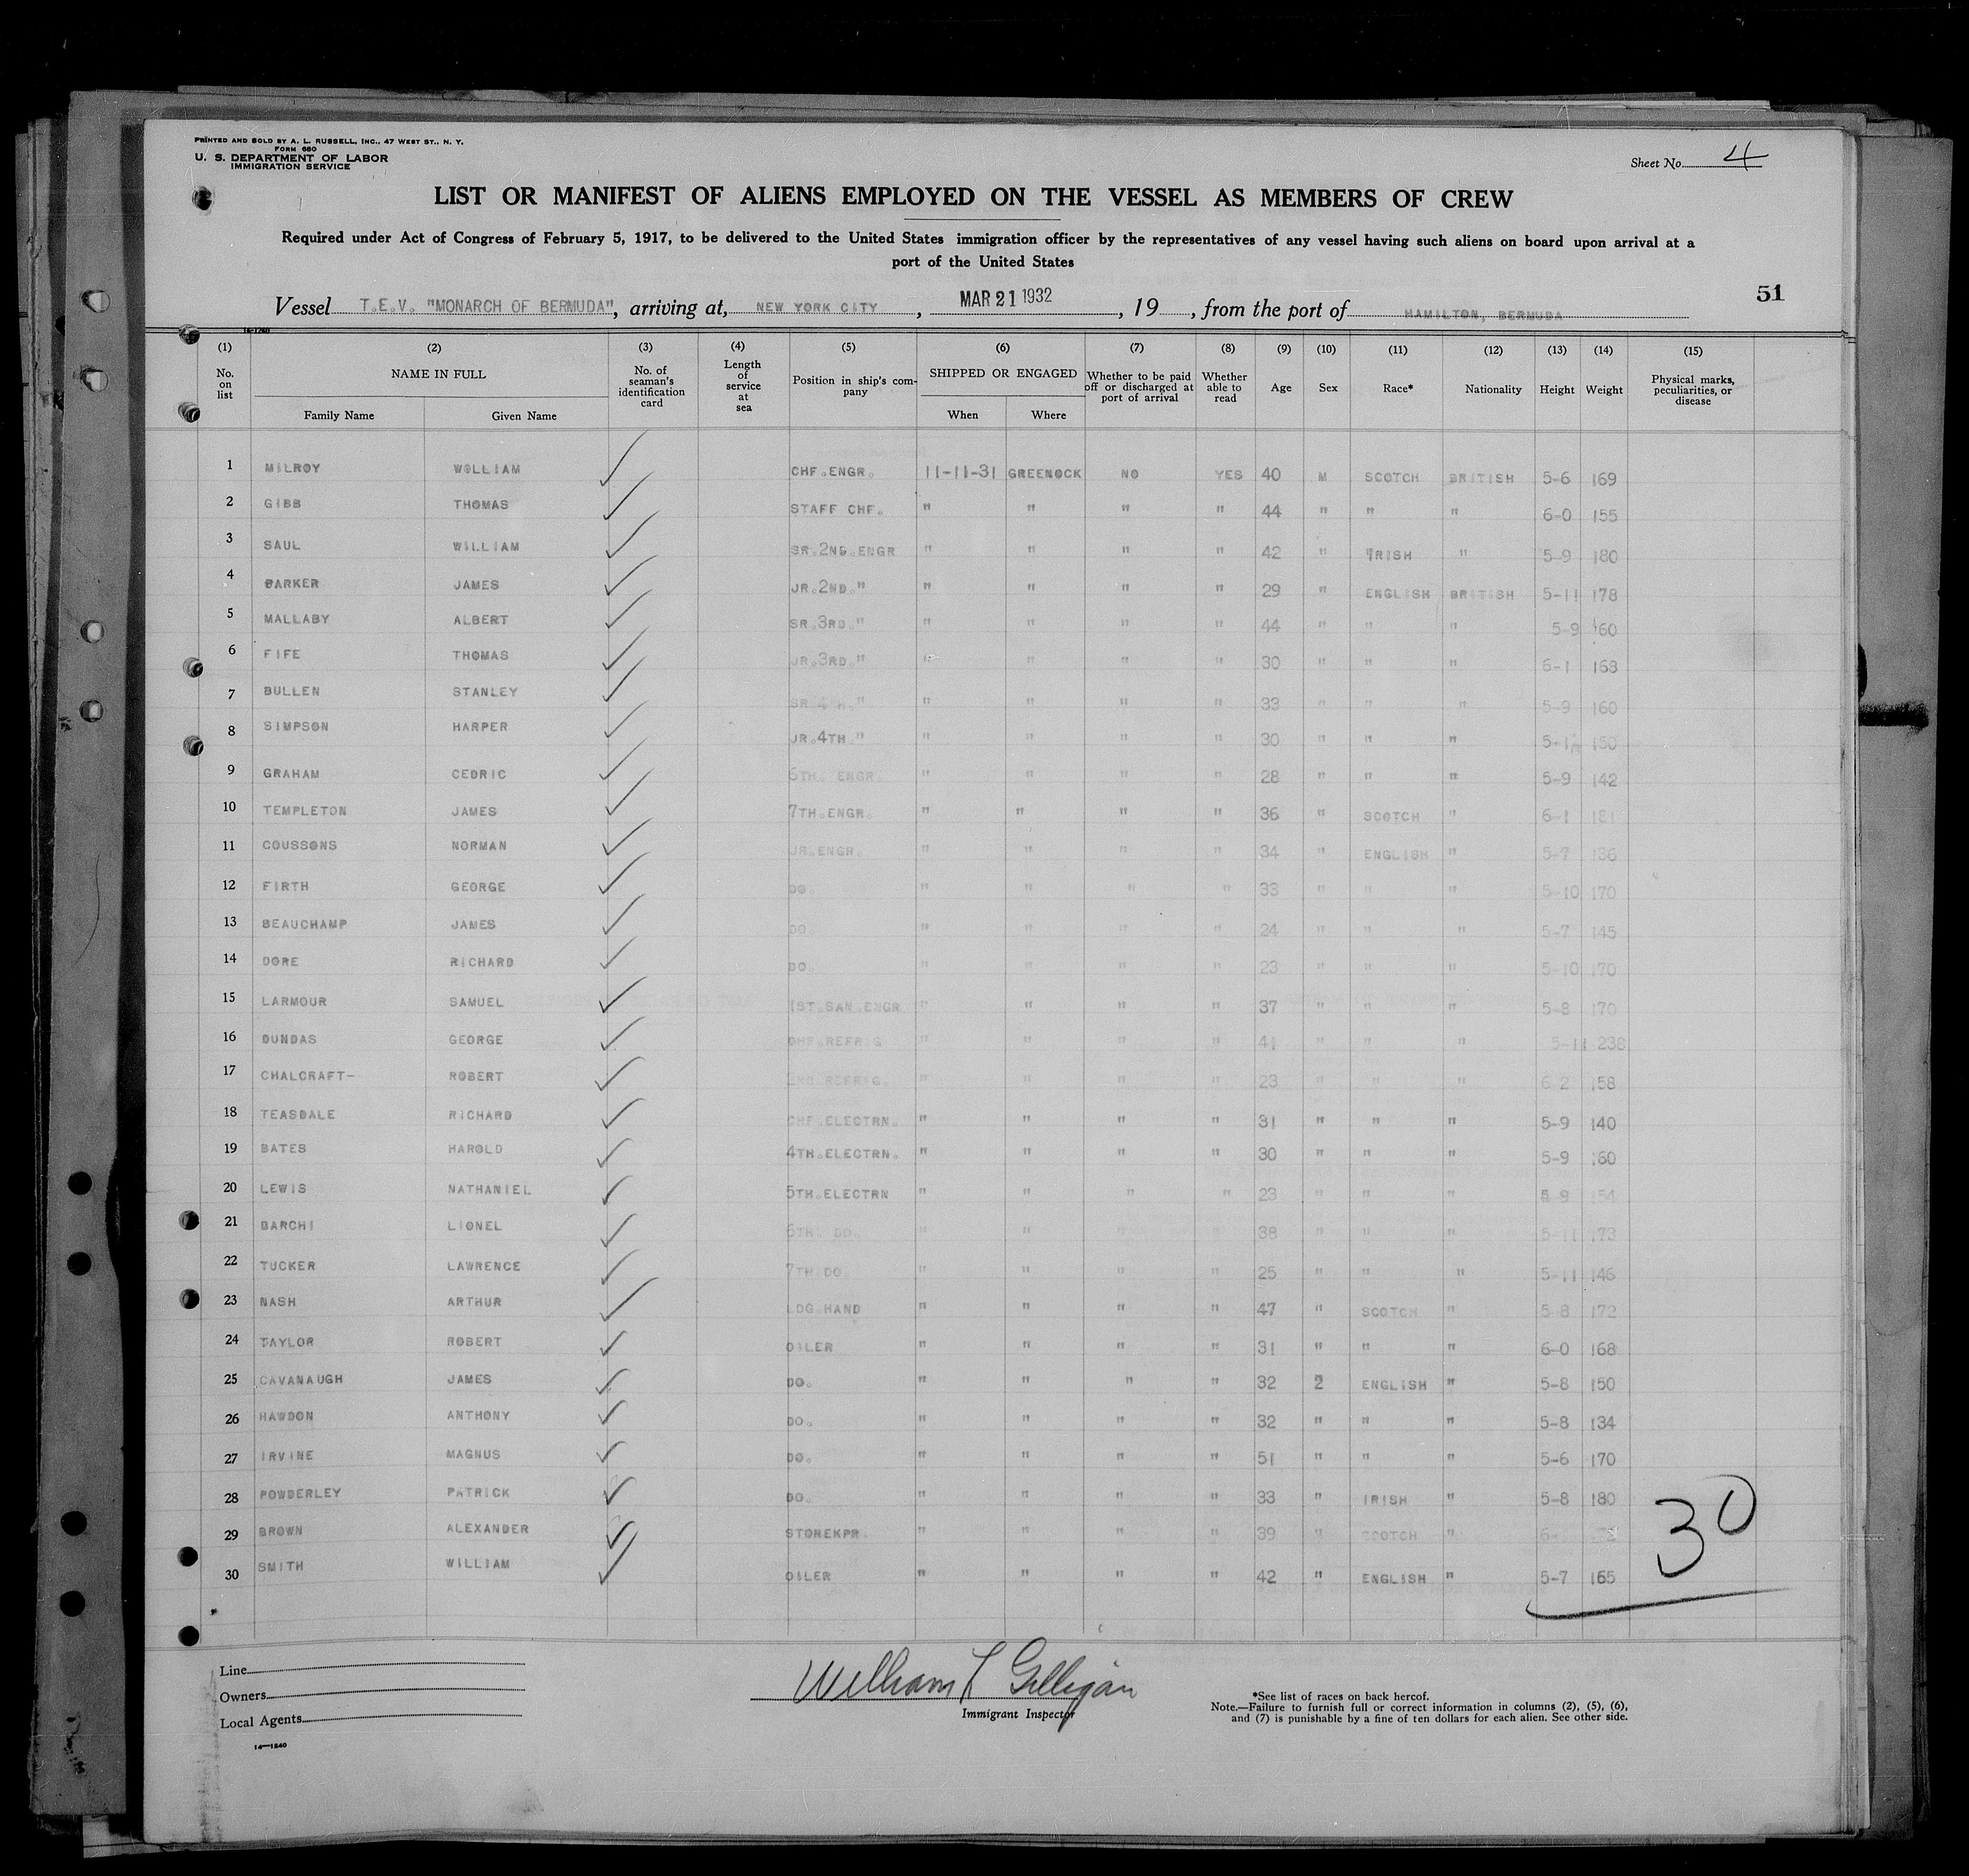 PRINTED AND SOLD BY A. L. RUSSELL, INC., 47 WEST ST., N. Y.
FORM 680
U. S. DEPARTMENT OF LABOR
IMMIGRATION SERVICE
Sheet No. 4
LIST OR MANIFEST OF ALIENS EMPLOYED ON THE VESSEL AS MEMBERS OF CREW
Required under Act of Congress of February 5, 1917, to be delivered to the United States immigration officer by the representatives of any vessel having such aliens on board upon arrival at a
port of the United States
51
Vessel T.E.V. "MONARCH OF BERMUDA", arriving at, NEW YORK CITY, MAR 21 1932, 19 , from the port of HAMILTON, BERMUDA
(1) (2) (3) (4) (5) (6) (7) (8) (9) (10) (11) (12) (13) (14) (15)
No. on list NAME IN FULL Family Name Given Name No. of seaman's identification card Length of service at sea Position in ship's company SHIPPED OR ENGAGED When Where Whether to be paid off or discharged at port of arrival Whether able to read Age Sex Race* Nationality Height Weight Physical marks, peculiarities, or disease
1 MILROY WOLLIAM CHF.ENGR. 11-11-31 GREENOCK NO YES 40 M SCOTCH BRITISH 5-6 169
2 GIBB THOMAS STAFF CHF. " " " " 44 " " " 6-0 155
3 SAUL WILLIAM SR.2ND.ENGR " " " " 42 " IRISH " 5-9 180
4 BARKER JAMES JR.2ND." " " " " 29 " ENGLISH BRITISH 5-11 178
5 MALLABY ALBERT SR.3RD." " " " " 44 " " " 5-9 160
6 FIFE THOMAS JR.3RD." " " " " 30 " " " 6-1 168
7 BULLEN STANLEY SR.4TH." " " " " 33 " " " 5-9 160
8 SIMPSON HARPER JR.4TH." " " " " 30 " " " 150
9 GRAHAM CEDRIC 6TH. ENGR " " " " 28 " " " 5-9 142
10 TEMPLETON JAMES 7TH.ENGR. " " " " 36 " SCOTCH " 6-1 181
11 COUSSONS NORMAN JR.ENGR. " " " " 34 " ENGLISH " 5-7 136
12 FIRTH GEORGE DO. " " " " 33 " " " 5-10 170
13 BEAUCHAMP JAMES DO. " " " " 24 " " " 5-7 145
14 DORE RICHARD DO. " " " " 23 " " " 5-10 170
15 LARMOUR SAMUEL 1ST.SAN.ENGR " " " " 37 " " " 5-8 170
16 DUNDAS GEORGE CHF.REFRIG " " " " 41 " " " 5-11 238
17 CHALCRAFT- ROBERT 2ND.REFRIG. " " " " 23 " " " 6-2 158
18 TEASDALE RICHARD CHF.ELECTRN. " " " " 31 " " " 5-9 140
19 BATES HAROLD 4TH.ELECTRN. " " " " 30 " " " 5-9 160
20 LEWIS NATHANIEL 5TH.ELECTRN " " " " 23 " " " 5-9 154
21 BARCHI LIONEL 6TH. DO. " " " " 38 " " " 5-11 173
22 TUCKER LAWRENCE 7TH.DO. " " " " 25 " " " 5-11 146
23 NASH ARTHUR LDG.HAND " " " " 47 " SCOTCH " 5-8 172
24 TAYLOR ROBERT OILER " " " " 31 " " " 6-0 168
25 CAVANAUGH JAMES DO. " " " " 32 2 ENGLISH " 5-8 150
26 HAWDON ANTHONY DO. " " " " 32 " " " 5-8 134
27 IRVINE MAGNUS DO. " " " " 51 " " " 5-6 170
28 POWDERLEY PATRICK DO. " " " " 33 " IRISH " 5-8 180
29 BROWN ALEXANDER STOREKPR. " " " " 39 " SCOTCH "
30 SMITH WILLIAM OILER " " " " 42 " ENGLISH " 5-7 165
30
Line
Owners
Local Agents
14—1240
William L Gilligan
Immigrant Inspector
*See list of races on back hereof.
Note.—Failure to furnish full or correct information in columns (2), (5), (6),
and (7) is punishable by a fine of ten dollars for each alien. See other side.